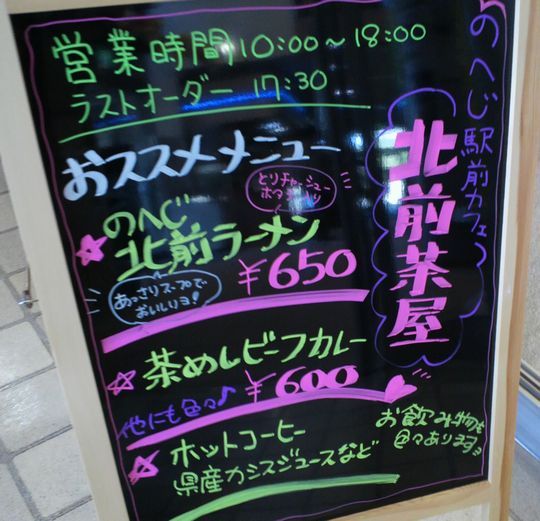 営業時間 10:00～18:00
ラストオーダー 17:30
のへじ駅前カフェ
北前茶屋
おススメメニュー
のへじ
北前ラーメン
とりチャーシュー
ホタテ入り
¥650
あっさりスープで
おいしいヨ!
茶めしビーフカレー
¥600
他にも色々♪
ホットコーヒー
県産カシスジュースなど
お飲み物も
色々あります